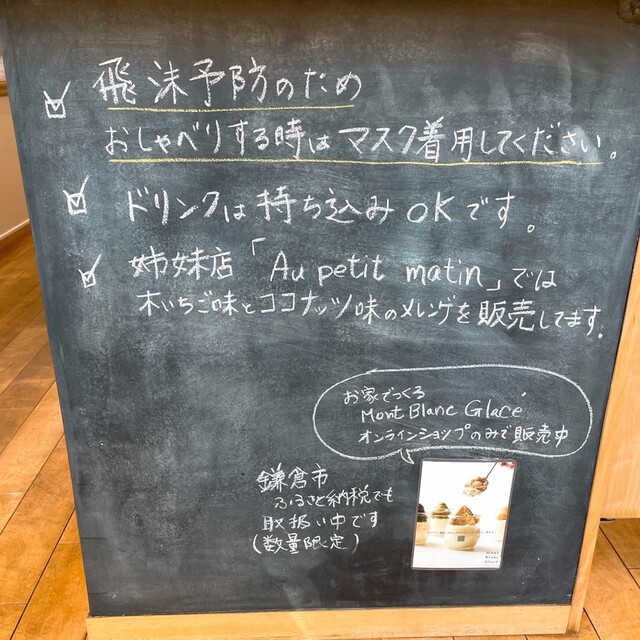 飛沫予防のため
おしゃべりする時はマスク着用してください。
ドリンクは持ち込みOKです。
姉妹店「Au petit matin」では
木いちご味とココナッツ味のメレンゲを販売してます。
お家でつくる
Mont Blanc Glacé
オンラインショップのみで販売中
鎌倉市
ふるさと納税でも
取扱い中です
(数量限定)
Mont
Blanc
Glacé